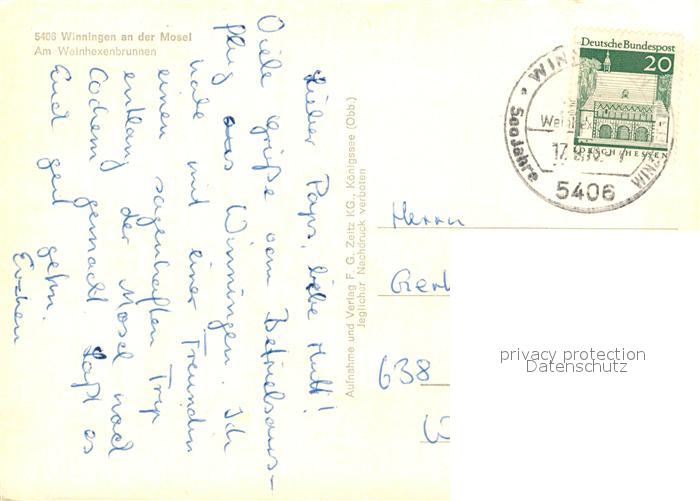 5406 Winningen an der Mosel
Am Weinhexenbrunnen
Lieber Paps, liebe Mutti!
Viele Grüße vom Betriebsaus-
flug aus Winningen. Ich
habe mit einer Freundin
einen sagenhaften Trip
entlang der Mosel nach
Cochem gemacht. Laßt es
Euch gut gehn.
Evchen
Aufnahme und Verlag F. G. Zeitz KG., Königssee (Obb.)
Jeglicher Nachdruck verboten
Deutsche Bundespost
20
LORSCH/HESSEN
500 Jahre
5406
Herrn
638
privacy protection
Datenschutz